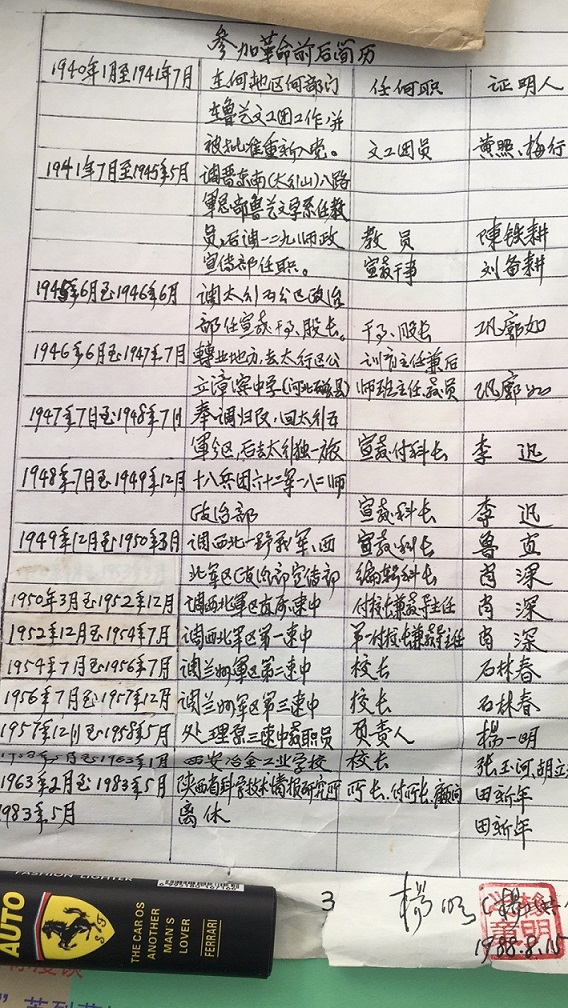 参加革命前后简历
1940年1月至1941年7月 在何地区何部门 任何职 证明人
在鲁艺文工团工作,并
被批准重新入党。 文工团员 黄照、梅行
1941年7月至1945年5月 调晋东南(太行山)八路
军总部鲁艺文学系任教
员,后调一二九师政 教员 陳铁耕
宣传部任职。 宣教干事 刘备耕
1945年6月至1946年6月 调太行五分区政治
部任宣教干事、股长。 干事、股长 巩廓如
1946年6月至1947年7月 轉业地方,去太行区公 训育主任兼后
立漳滨中学(河北磁县) 师班主任、教员 巩廓如
1947年7月至1948年7月 奉调归队,回太行五
军分区,后去太行独一旅 宣教付科长 李迅
1948年7月至1949年12月 十八兵团六十二军一八二师
政治部 宣教科长 李迅
1949年12月至1950年3月 调西北一野我军、西 宣教科长 鲁直
北军区政治部宣传部 编辑科长 肖深
1950年3月至1952年12月 调西北军区直属速中 付校长兼教导主任 肖深
1952年12月至1954年7月 调西北军区第一速中 第一付校长兼教导主任 肖深
1954年7月至1956年7月 调兰州軍区第二速中 校长 石林春
1956年7月至1957年12月 调兰州军区第三速中 校长 石林春
1957年12月至1958年5月 处理原三速中教职员 负责人 楊一明
至1963年1月 西安冶金工业学校 校长 张玉河、胡立
1963年2月至1983年5月 陕西省科学技术情报研究所 所长、付所长、顧问 田新年
1983年5月 离休 田新年
FASHION LIGHTER
AUTO
S F
THE CAR OS
ANOTHER
MAN'S
LOVER
FERRARI
3
楊明
1988.8.15